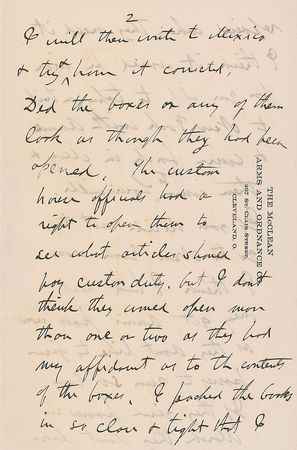 2
I will then write to Mexico
& try & have it corrected.
Did the boxes or any of them
look as though they had been
opened. The custom
house officials had a
right to open them to
see what articles should
pay custom duty, but I don't
think they would open more
than one or two as they had
my affidavit as to the contents
of the boxes. I packed the books
in so close & tight that I
THE McCLEAN
ARMS AND ORDNANCE CO
207 ST. CLAIR STREET,
CLEVELAND, O.